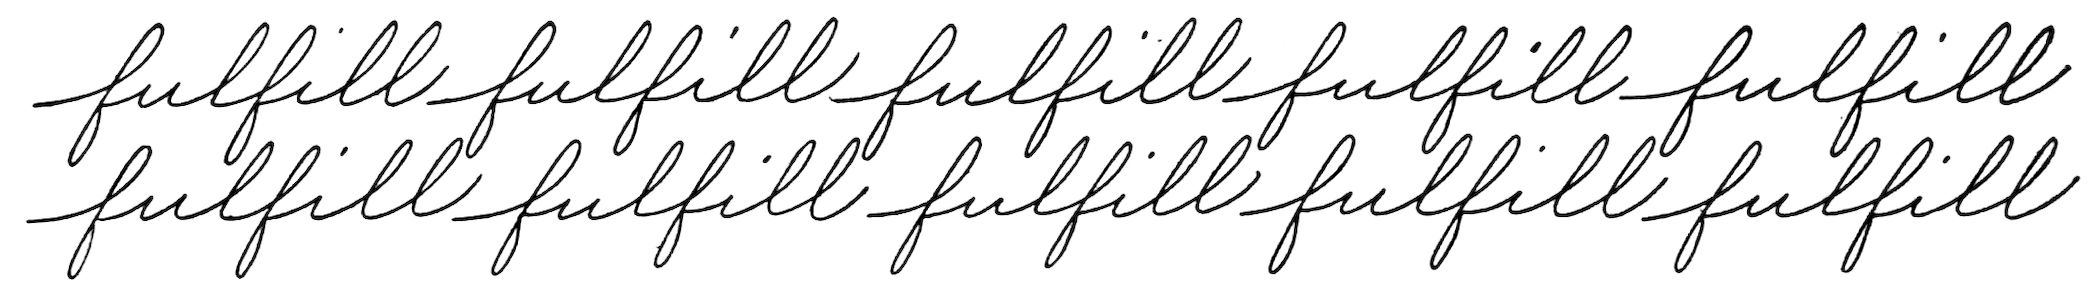 fulfill fulfill fulfill fulfill fulfill
fulfill fulfill fulfill fulfill fulfill